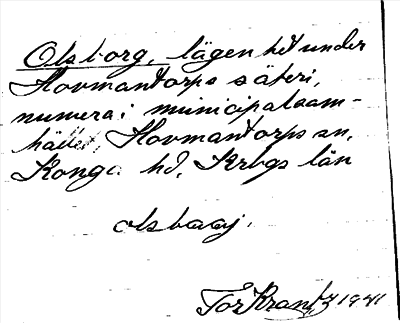 Olsborg, lägenhet under
Hovmantorps säteri,
numera i municipalsam-
hället, Hovmantorps sn,
Konga hd, Krbgs län
olsbååj.
Tor Krantz 1941